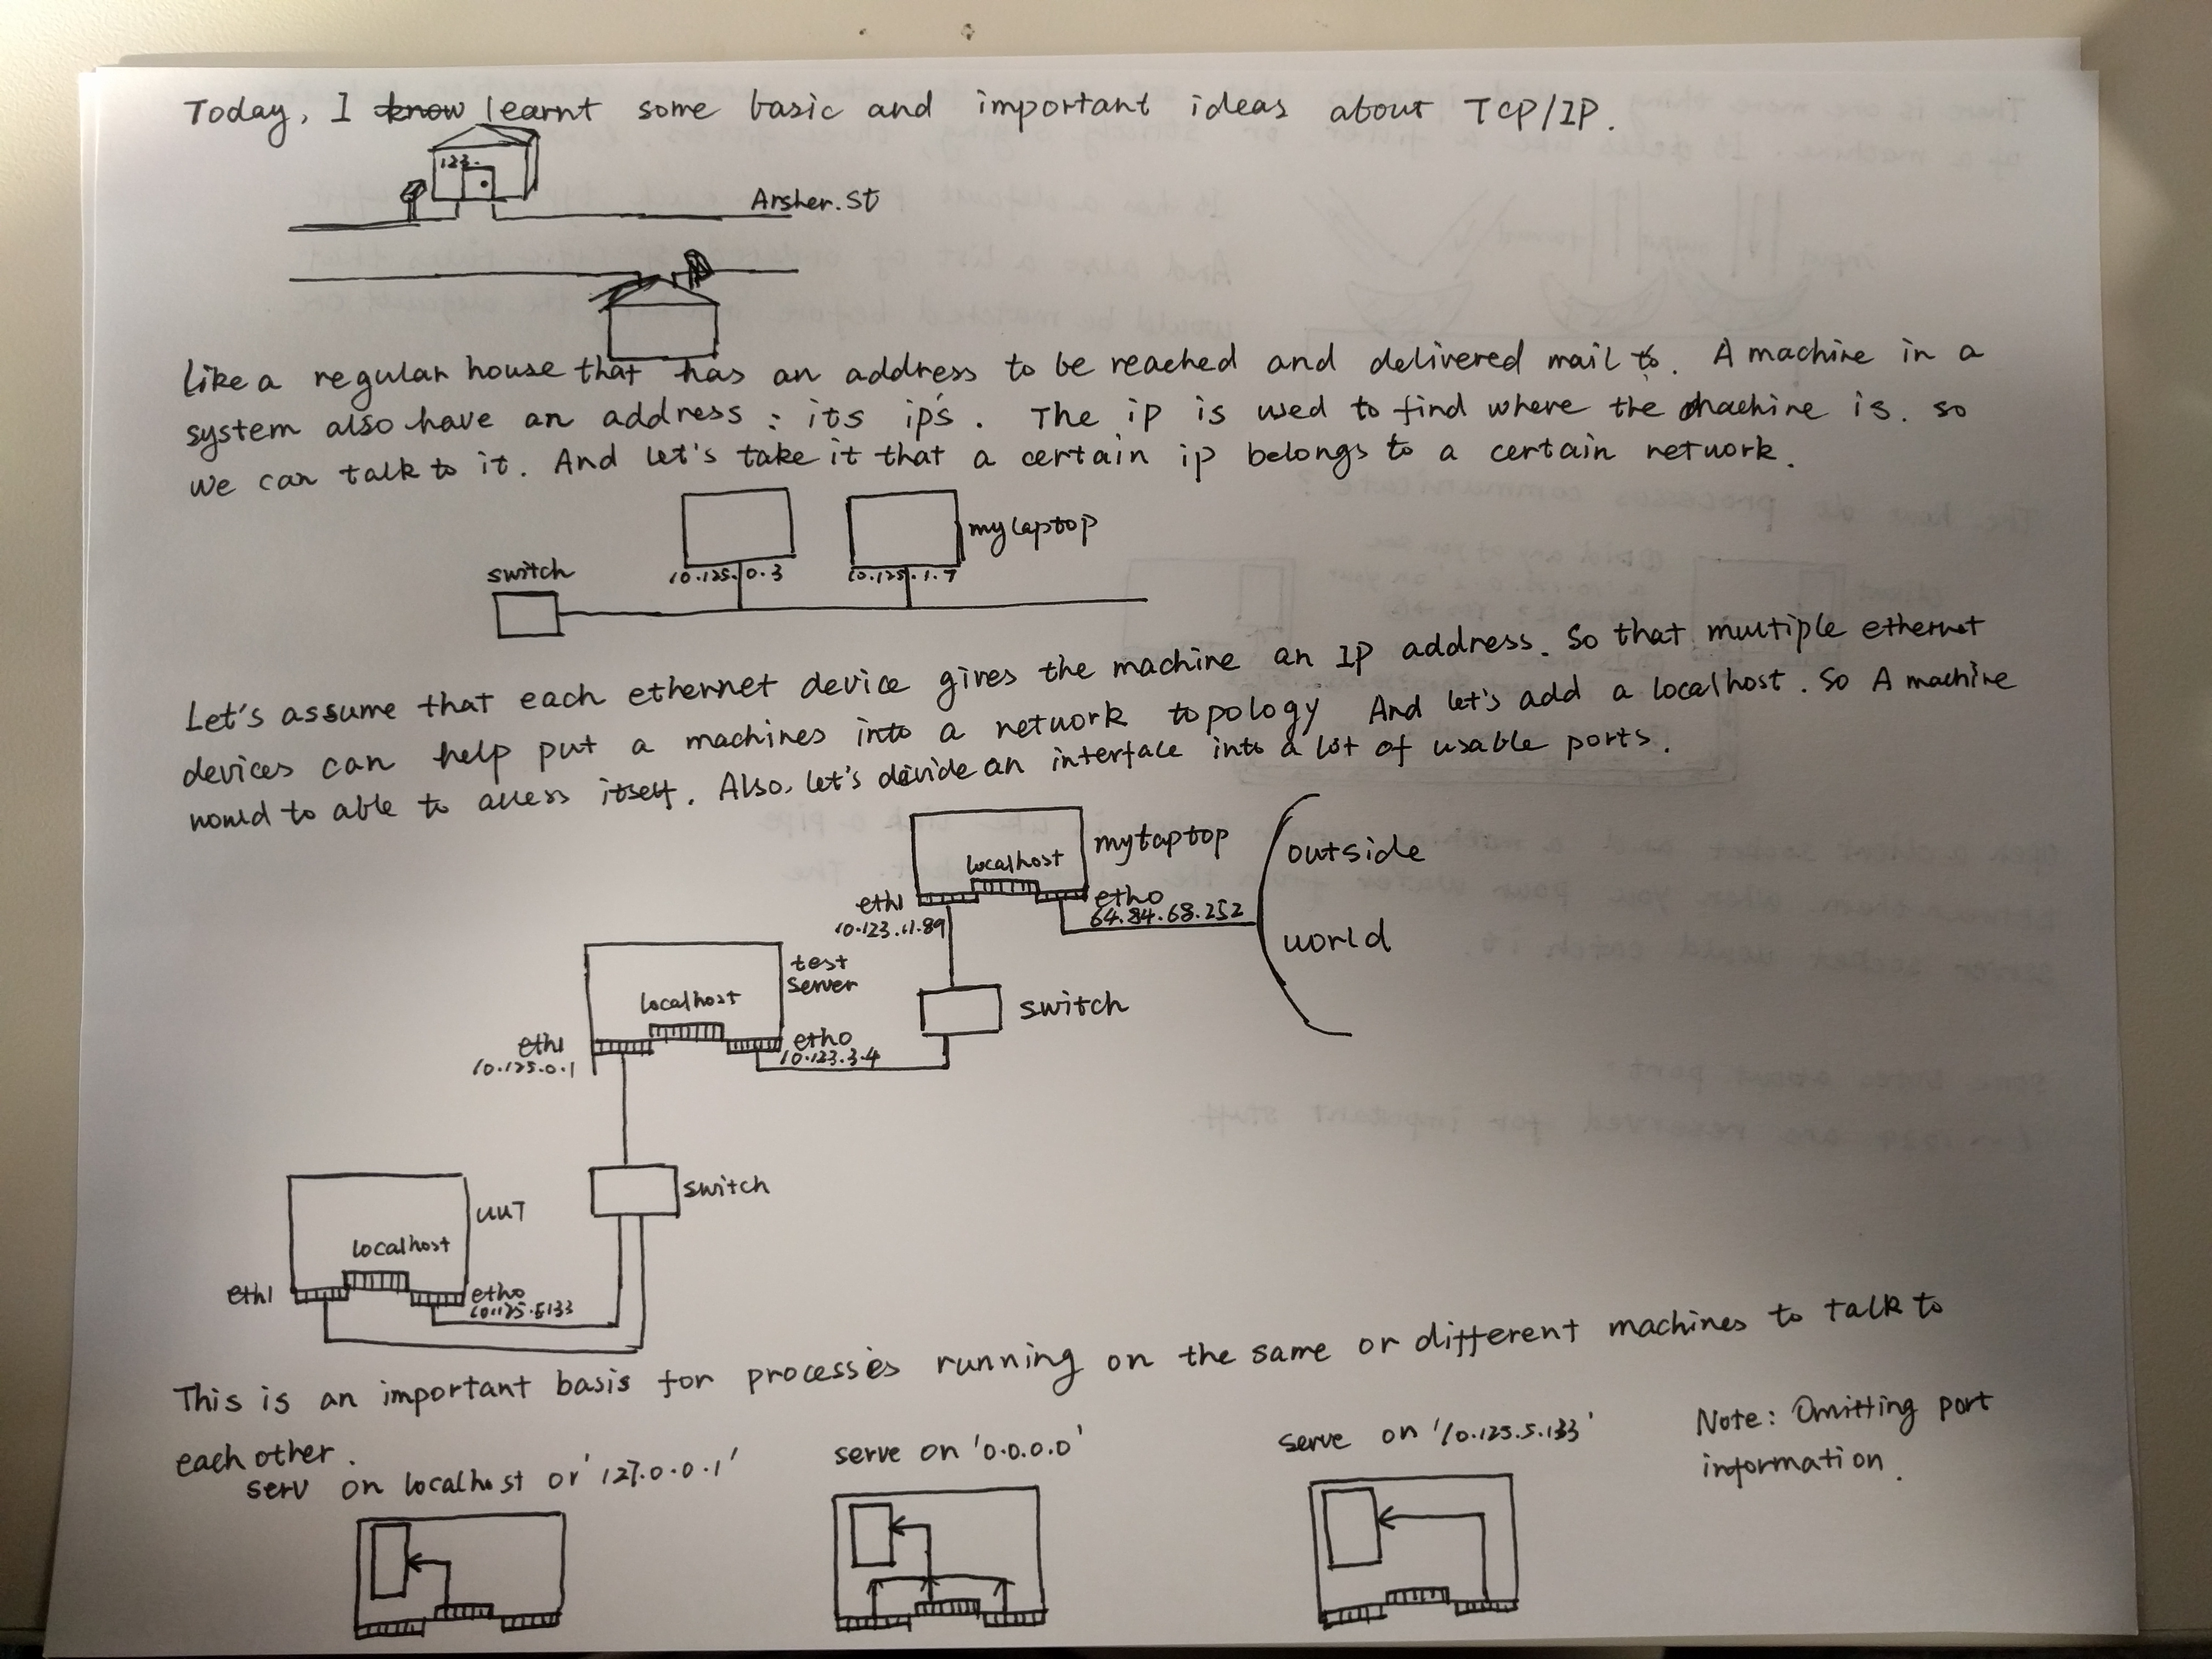 Today, I know learnt some basic and important ideas about TCP/IP.
123.
Arsher. St
Like a regular house that has an address to be reached and delivered mail to. A machine in a
system also have an address : its ip's. The ip is used to find where the machine is. so
we can talk to it. And let's take it that a certain ip belongs to a certain network.
my laptop
switch
10.125.0.3
10.125.1.7
Let's assume that each ethernet device gives the machine an IP address. So that multiple ethernet
devices can help put a machines into a network topology And let's add a localhost. So A machine
to able to access itself. Also, let's devide an interface into a lot of usable ports.
my laptop
localhost
eth1
10.123.11.89
eth0
64.84.68.252
outside
world
test
server
localhost
eth1
10.125.0.1
eth0
10.123.3.4
switch
switch
UUT
localhost
eth1
eth0
10.125.5.133
This is an important basis for processes running on the same or different machines to talk to
each other.
serv on localhost or '127.0.0.1'
serve on '0.0.0.0'
serve on '10.125.5.133'
Note: Omitting port
information.